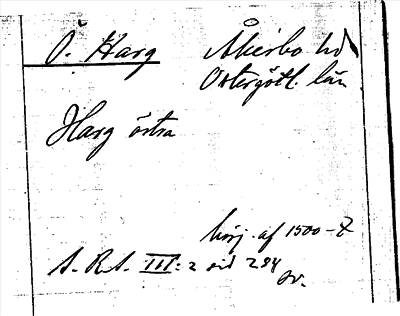 Ö. Harg Åkerbo hd
Östergötl. län
Harg östra
börj. af 1500-t
S. R. A. III: 2 sid 284
sv.